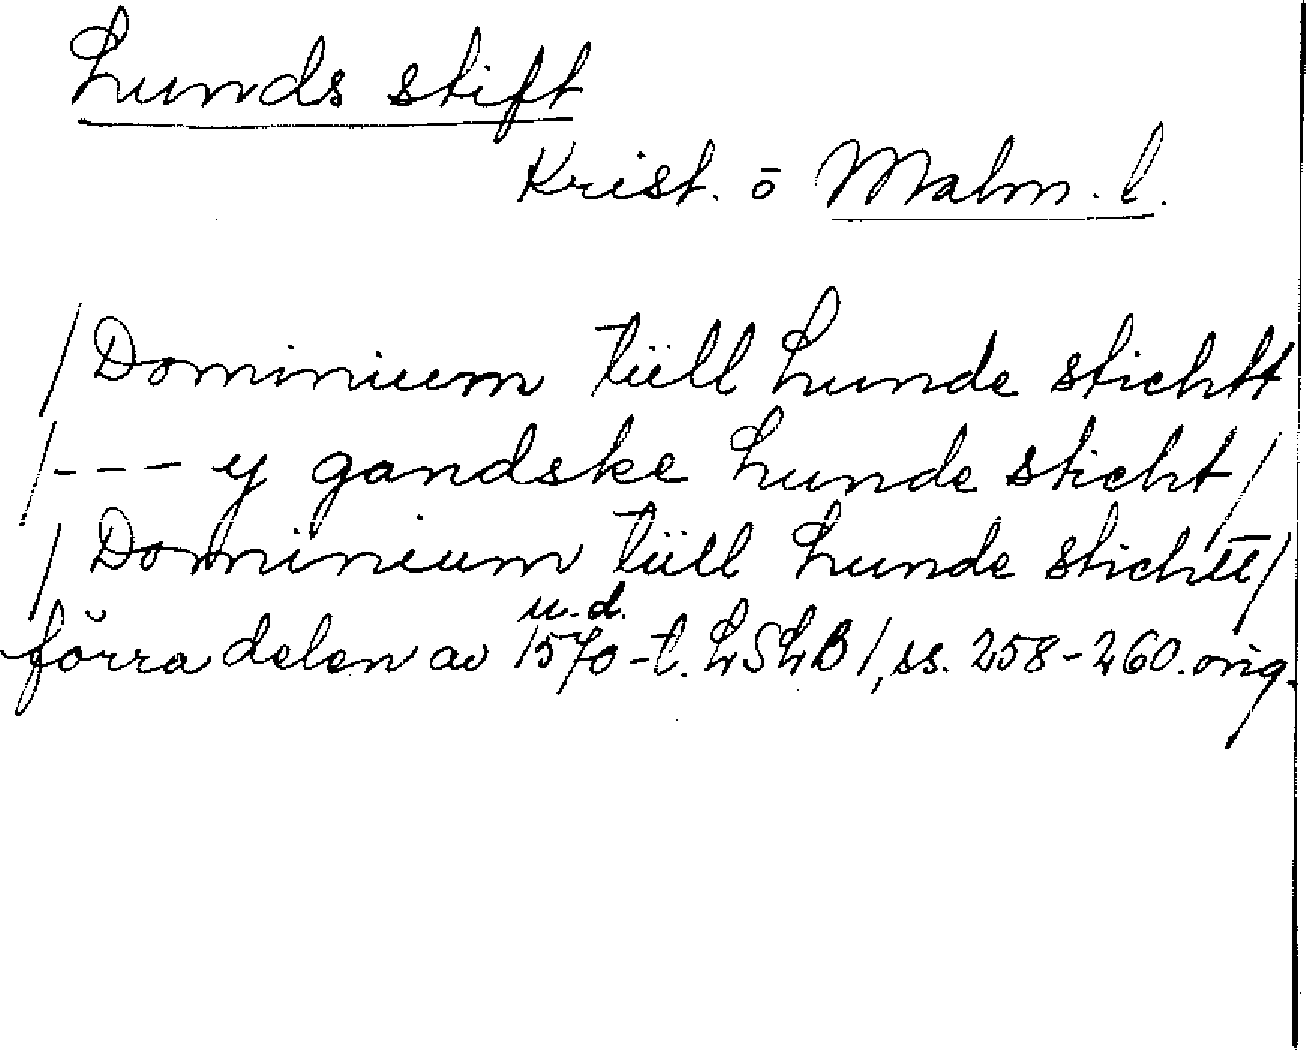 Lunds stift
Krist. o Malm. l.
/Dominium tüll Lunde stichtt
/--- y gandske Lunde sticht/
/Dominium tüll Lunde stichtt/
u.d.
förra delen av 1570-t. LSLB1, ss. 258-260. orig.